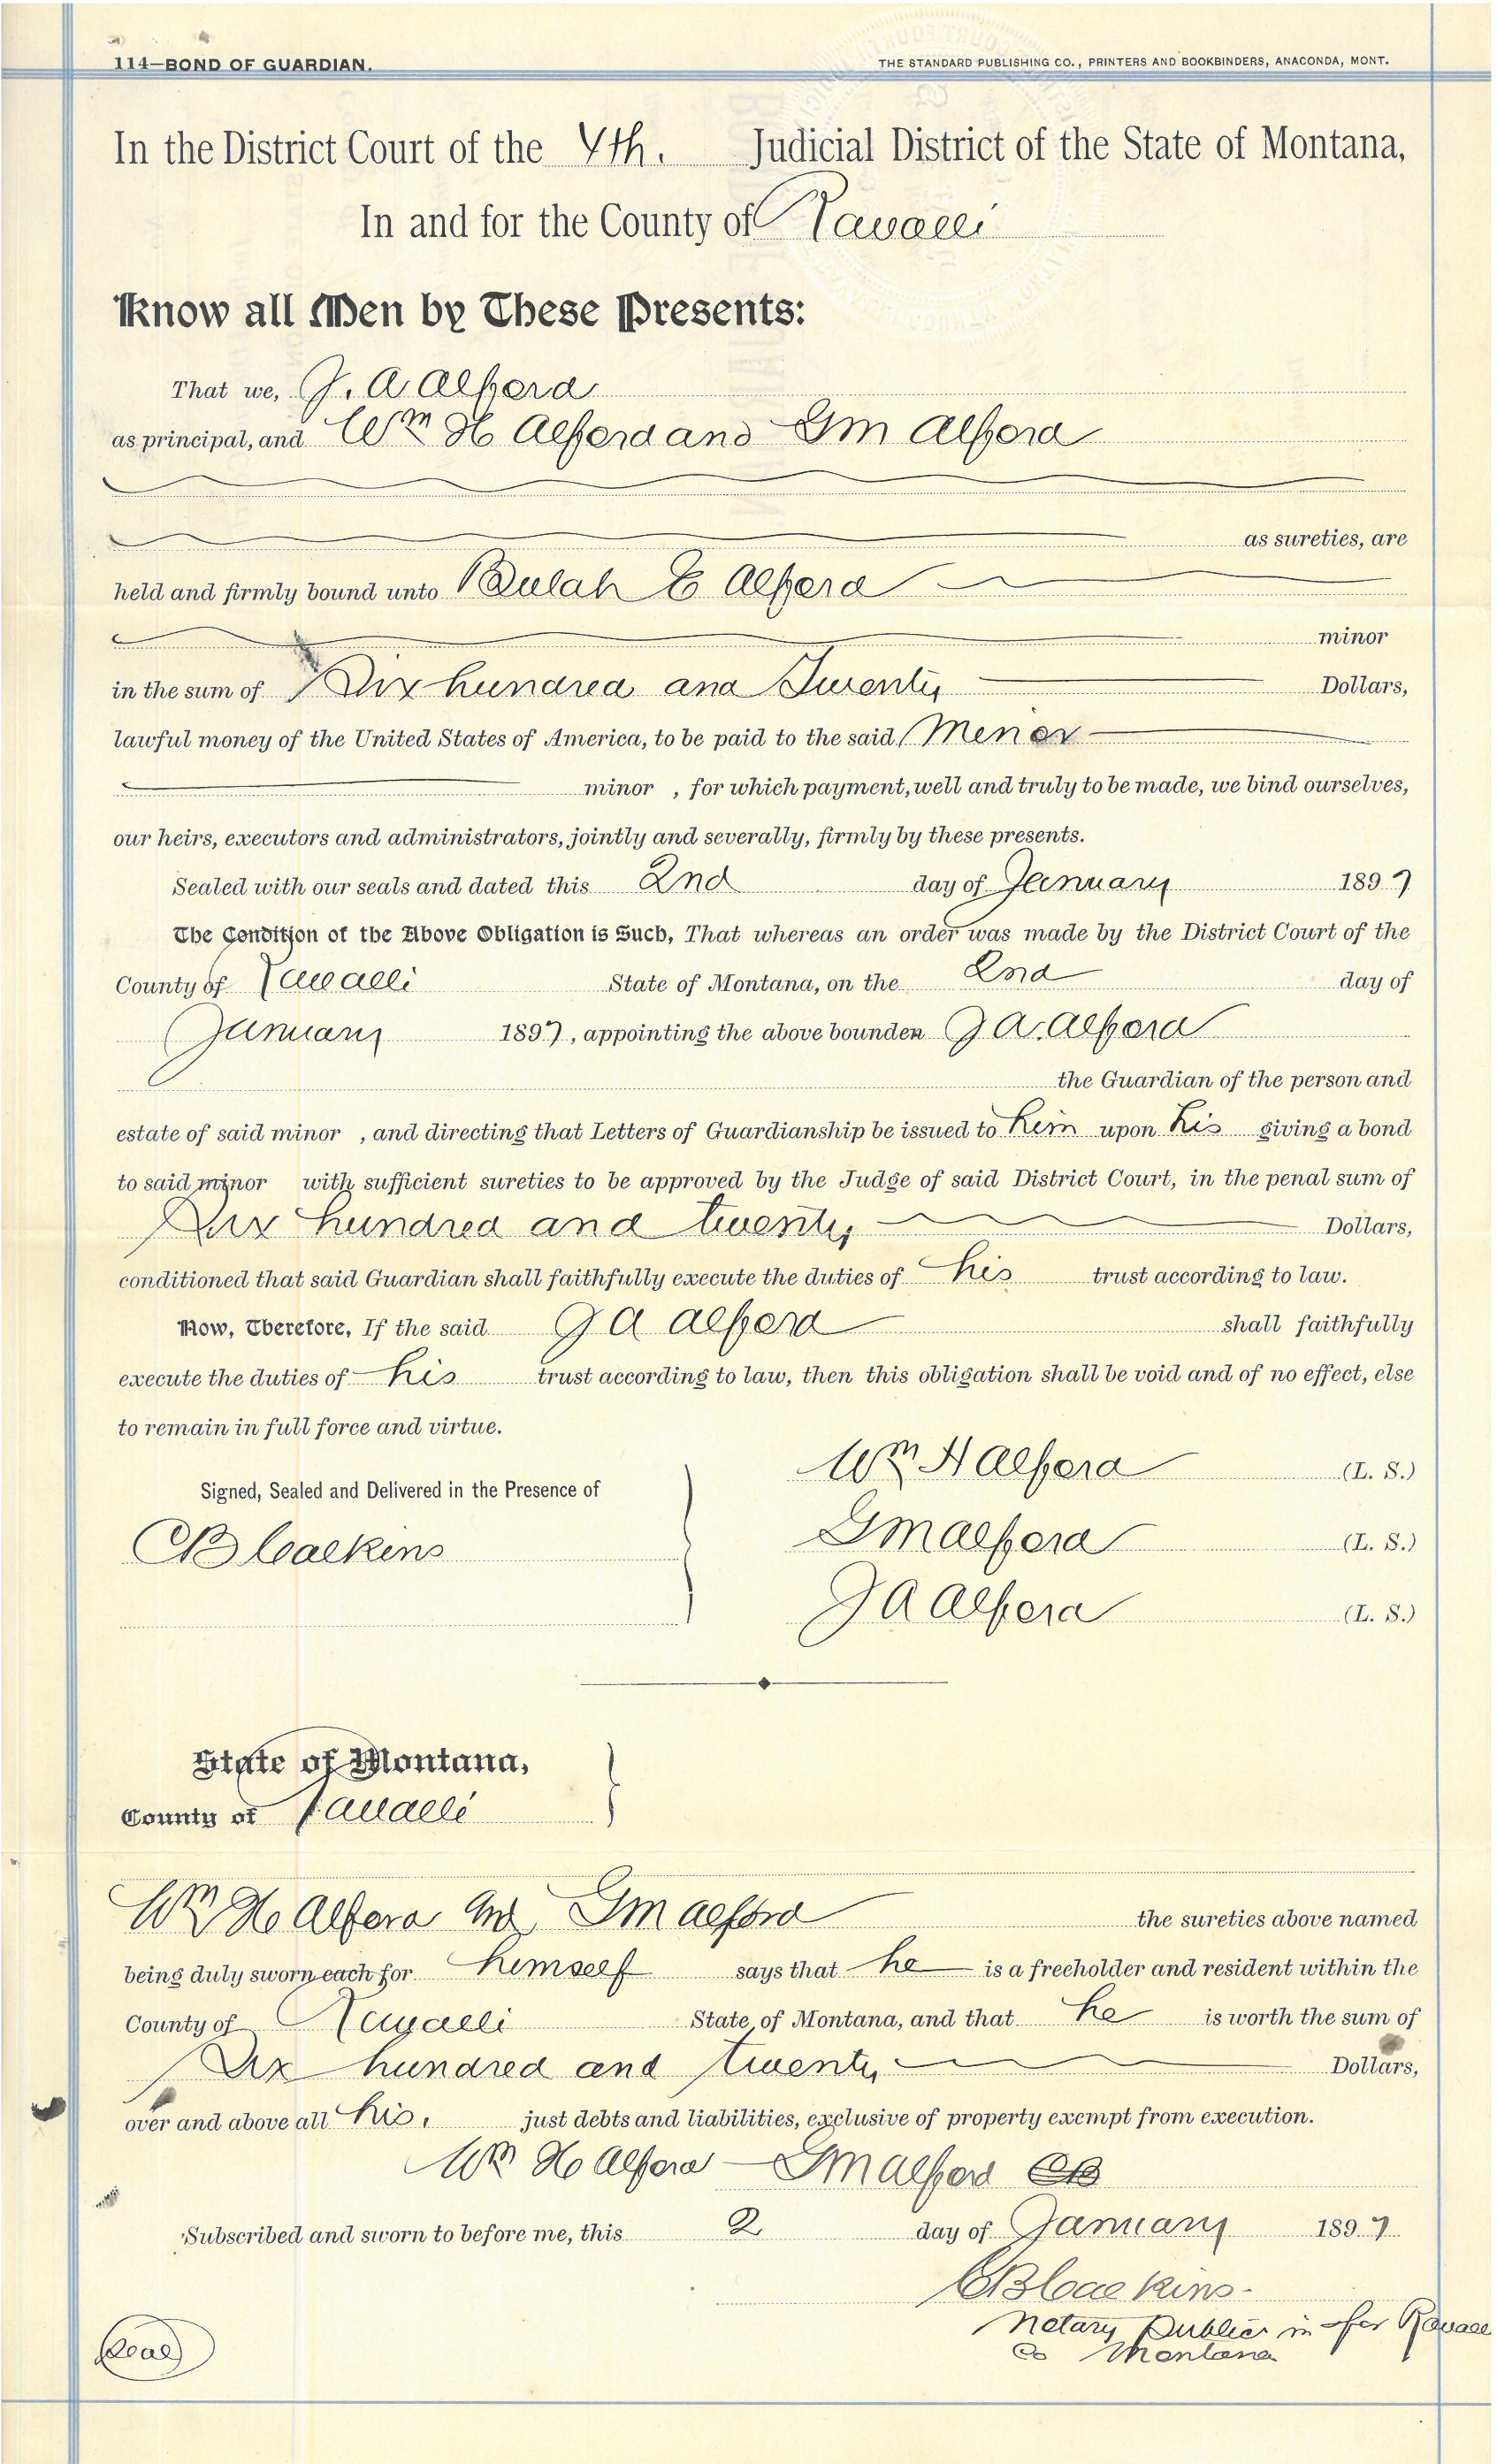 114—BOND OF GUARDIAN. THE STANDARD PUBLISHING CO., PRINTERS AND BOOKBINDERS, ANACONDA, MONT.
In the District Court of the 4th. Judicial District of the State of Montana,
In and for the County of Ravalli
Know all Men by These Presents:
That we, J. A Alford
as principal, and Wm H Alford and G M Alford
as sureties, are
held and firmly bound unto Beulah E Alford
minor
in the sum of Six hundred and Twenty Dollars,
lawful money of the United States of America, to be paid to the said Minor
minor , for which payment, well and truly to be made, we bind ourselves,
our heirs, executors and administrators, jointly and severally, firmly by these presents.
Sealed with our seals and dated this 2nd day of January 1897
The Condition of the Above Obligation is Such, That whereas an order was made by the District Court of the
County of Ravalli State of Montana, on the 2nd day of
January 1897, appointing the above bounden J A. Alford
the Guardian of the person and
estate of said minor , and directing that Letters of Guardianship be issued to him upon his giving a bond
to said minor with sufficient sureties to be approved by the Judge of said District Court, in the penal sum of
Six hundred and twenty Dollars,
conditioned that said Guardian shall faithfully execute the duties of his trust according to law.
Now, Therefore, If the said J A Alford shall faithfully
execute the duties of his trust according to law, then this obligation shall be void and of no effect, else
to remain in full force and virtue.
Wm H Alford (L. S.)
Signed, Sealed and Delivered in the Presence of
G M Alford (L. S.)
C B Calkins
J A Alford (L. S.)
State of Montana,
County of Ravalli
Wm H Alford and G M Alford the sureties above named
being duly sworn each for himself says that he is a freeholder and resident within the
County of Ravalli State of Montana, and that he is worth the sum of
Six hundred and twenty Dollars,
over and above all his. just debts and liabilities, exclusive of property exempt from execution.
Wm H Alford — G M Alford
Subscribed and sworn to before me, this 2 day of January 1897
C B Calkins
Notary Public in for Ravalli
Co Montana
Seal